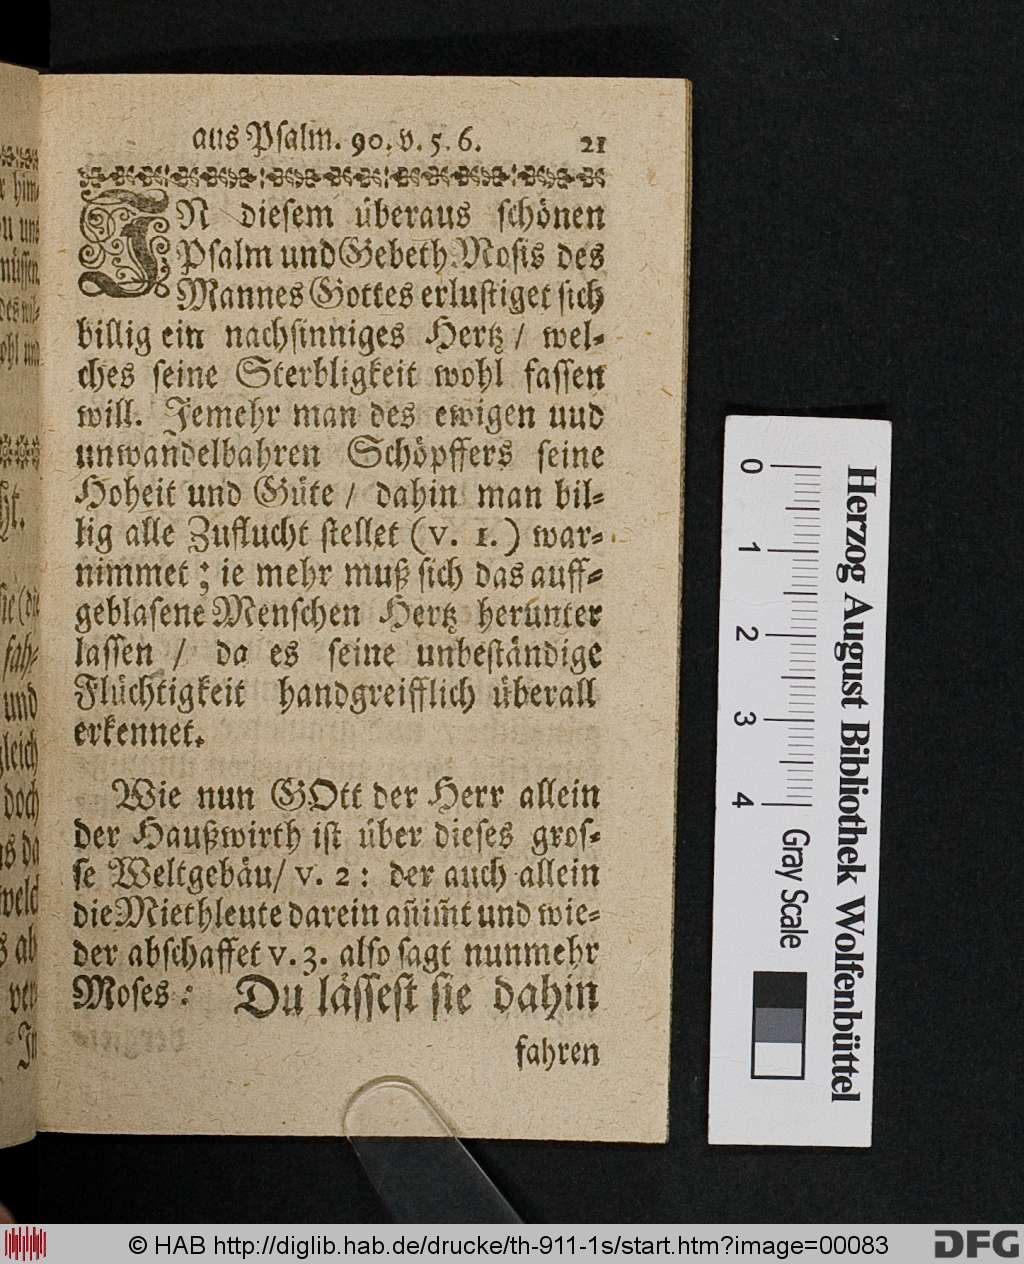 aus Psalm. 90. v. 5. 6. 21
IN diesem überaus schönen
Psalm und Gebeth Mosis des
Mannes Gottes erlustiget sich
billig ein nachsinniges Hertz / wel-
ches seine Sterbligkeit wohl fassen
will. Jemehr man des ewigen uud
unwandelbahren Schöpffers seine
Hoheit und Güte / dahin man bil-
lig alle Zuflucht stellet (v. 1.) war-
nimmet; ie mehr muß sich das auff-
geblasene Menschen Hertz herunter
lassen / da es seine unbeständige
Flüchtigkeit handgreifflich überall
erkennet.
Wie nun GOtt der Herr allein
der Haußwirth ist über dieses gros-
se Weltgebäu/ v. 2: der auch allein
die Miethleute darein an̄im̄t und wie-
der abschaffet v. 3. also sagt nunmehr
Moses: Du lässest sie dahin
fahren
0 1 2 3 4
Gray Scale
Herzog August Bibliothek Wolfenbüttel
© HAB http://diglib.hab.de/drucke/th-911-1s/start.htm?image=00083
DFG